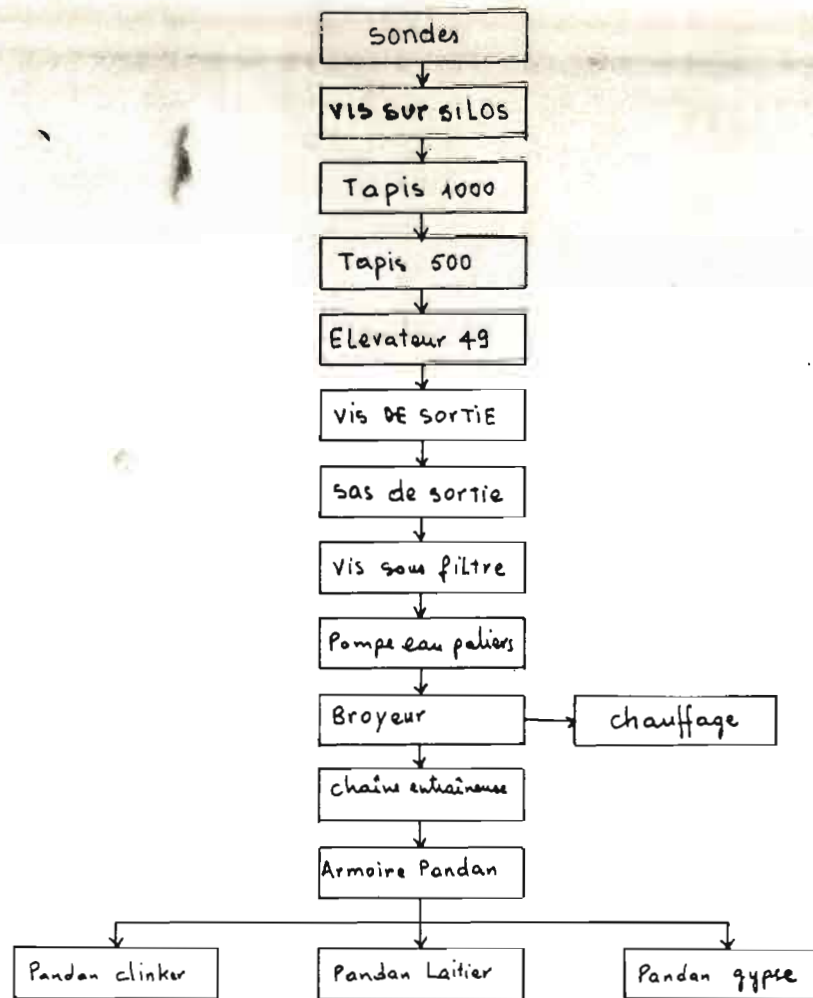 sondes
VIS SUR SILOS
Tapis 1000
Tapis 500
Elevateur 49
Vis DE SORTIE
sas de sortie
Vis sous filtre
Pompe eau paliers
Broyeur
chauffage
chaîne entraîneuse
Armoire Pandan
Pandan clinker
Pandan Laitier
Pandan gypse